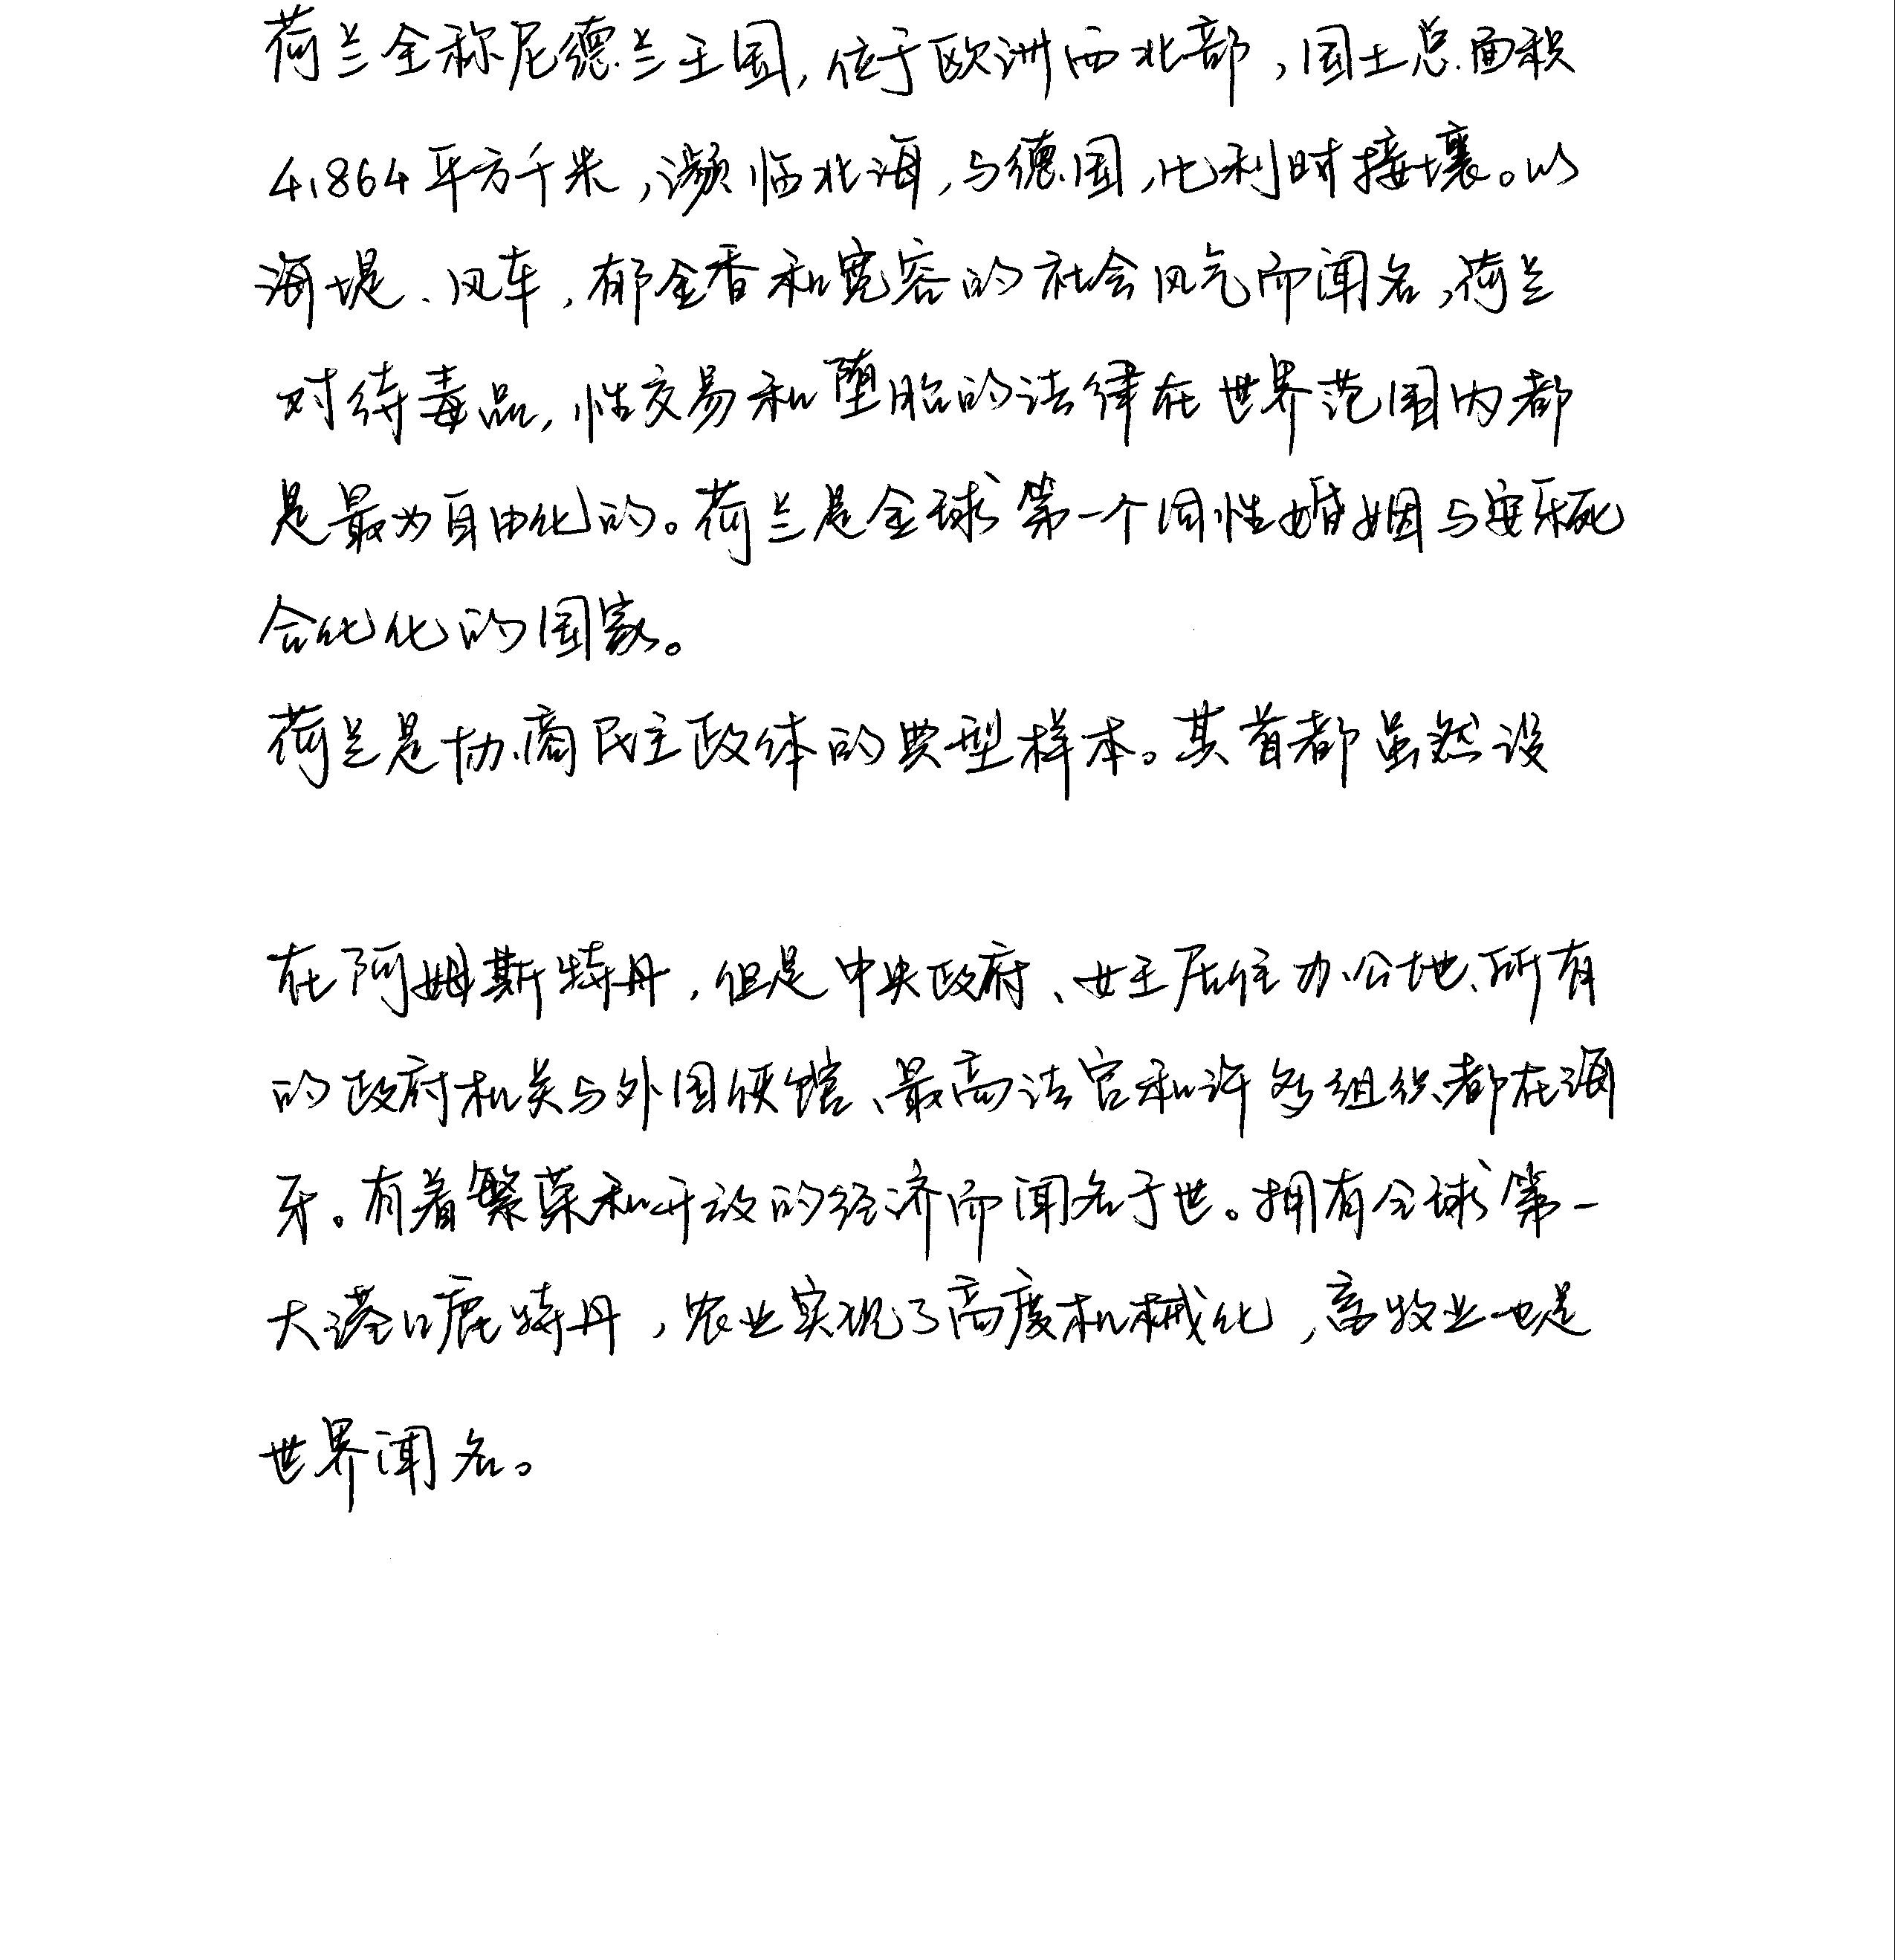 荷兰全称尼德兰王国,位于欧洲西北部,国土总面积
41864平方千米,濒临北海,与德国,比利时接壤。以
海堤、风车,郁金香和宽容的社会风气而闻名,荷兰
对待毒品,性交易和堕胎的法律在世界范围内都
是最为自由化的。荷兰是全球第一个同性婚姻与安乐死
合化化的国家。
荷兰是协商民主政体的典型样本。其首都虽然设
在阿姆斯特丹,但是中央政府、女王居住办公地、所有
的政府机关与外国使馆、最高法官和许多组织都在海
牙。有着繁荣和开放的经济而闻名于世。拥有全球第一
大港口鹿特丹,农业实现了高度机械化,畜牧业也是
世界闻名。